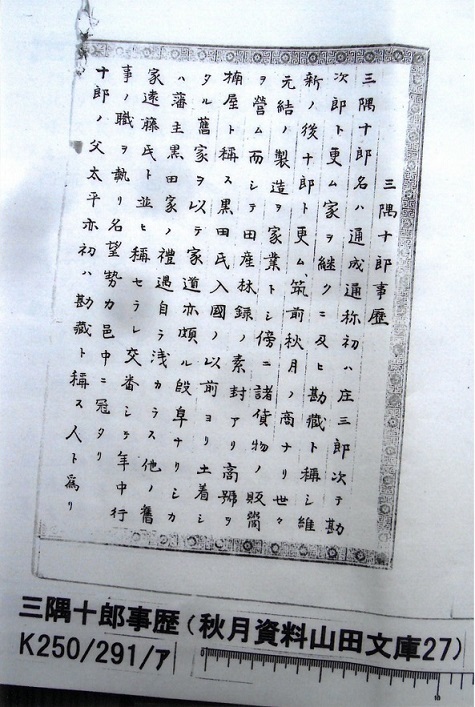 三隅十郎事歴
三隅十郎名ハ通成通称初ハ庄三郎次テ勘
次郎ト更ム家ヲ継クニ及ヒ勘蔵ト稱シ維
新ノ後十郎ト更ム筑前秋月ノ商ナリ世々
元結ノ製造ヲ家業トシ傍ニ諸貨物ノ販鬻
ヲ營ム而シテ田産林録ノ素封アリ高號ヲ
楠屋ト稱ス黒田氏入國ノ以前ヨリ土着シ
タル舊家ヲ以テ家道亦頗ル殷阜ナリシカ
ハ藩主黒田家ノ禮遇自ラ浅カラス他ノ舊
家遠藤氏ト並ヒ稱セラレ交番シテ年中行
事ノ職ヲ執リ名望勢力邑中ニ冠タリ
十郎ノ父太平亦初ハ勘蔵ト稱ス人ト爲リ
三隅十郎事歴（秋月資料山田文庫27）
K250/291/ア